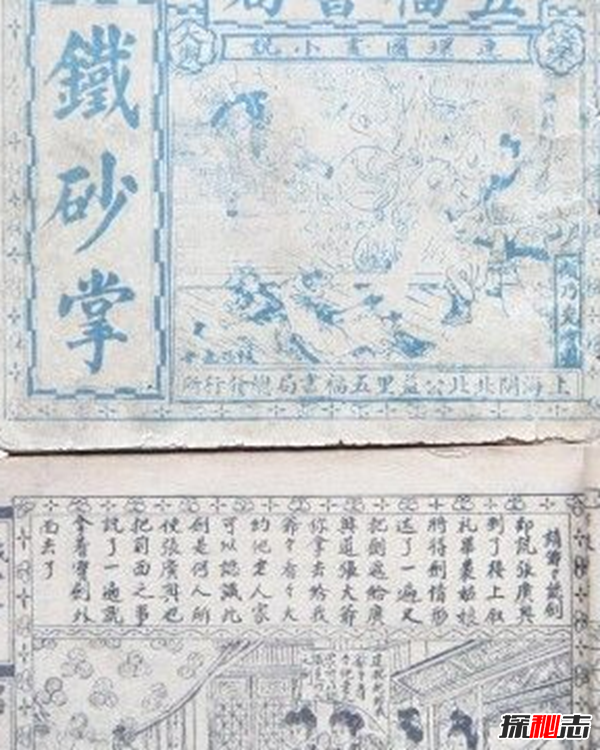 五福書局
連環圖畫小說
鐵砂掌
上海閘北北公益里五福書局總發行所
却說張廣興
到了樓上叙
礼畢裘姑娘
將得劍情形
述了一遍又
把劍遞給廣
興道張大爺
你拿去給我
爺爺看看大
約他老人家
可以認識此
劍是何人所
使張廣興也
把前面之事
說了一遍就
拿着寶劍外
面去了
探秘志